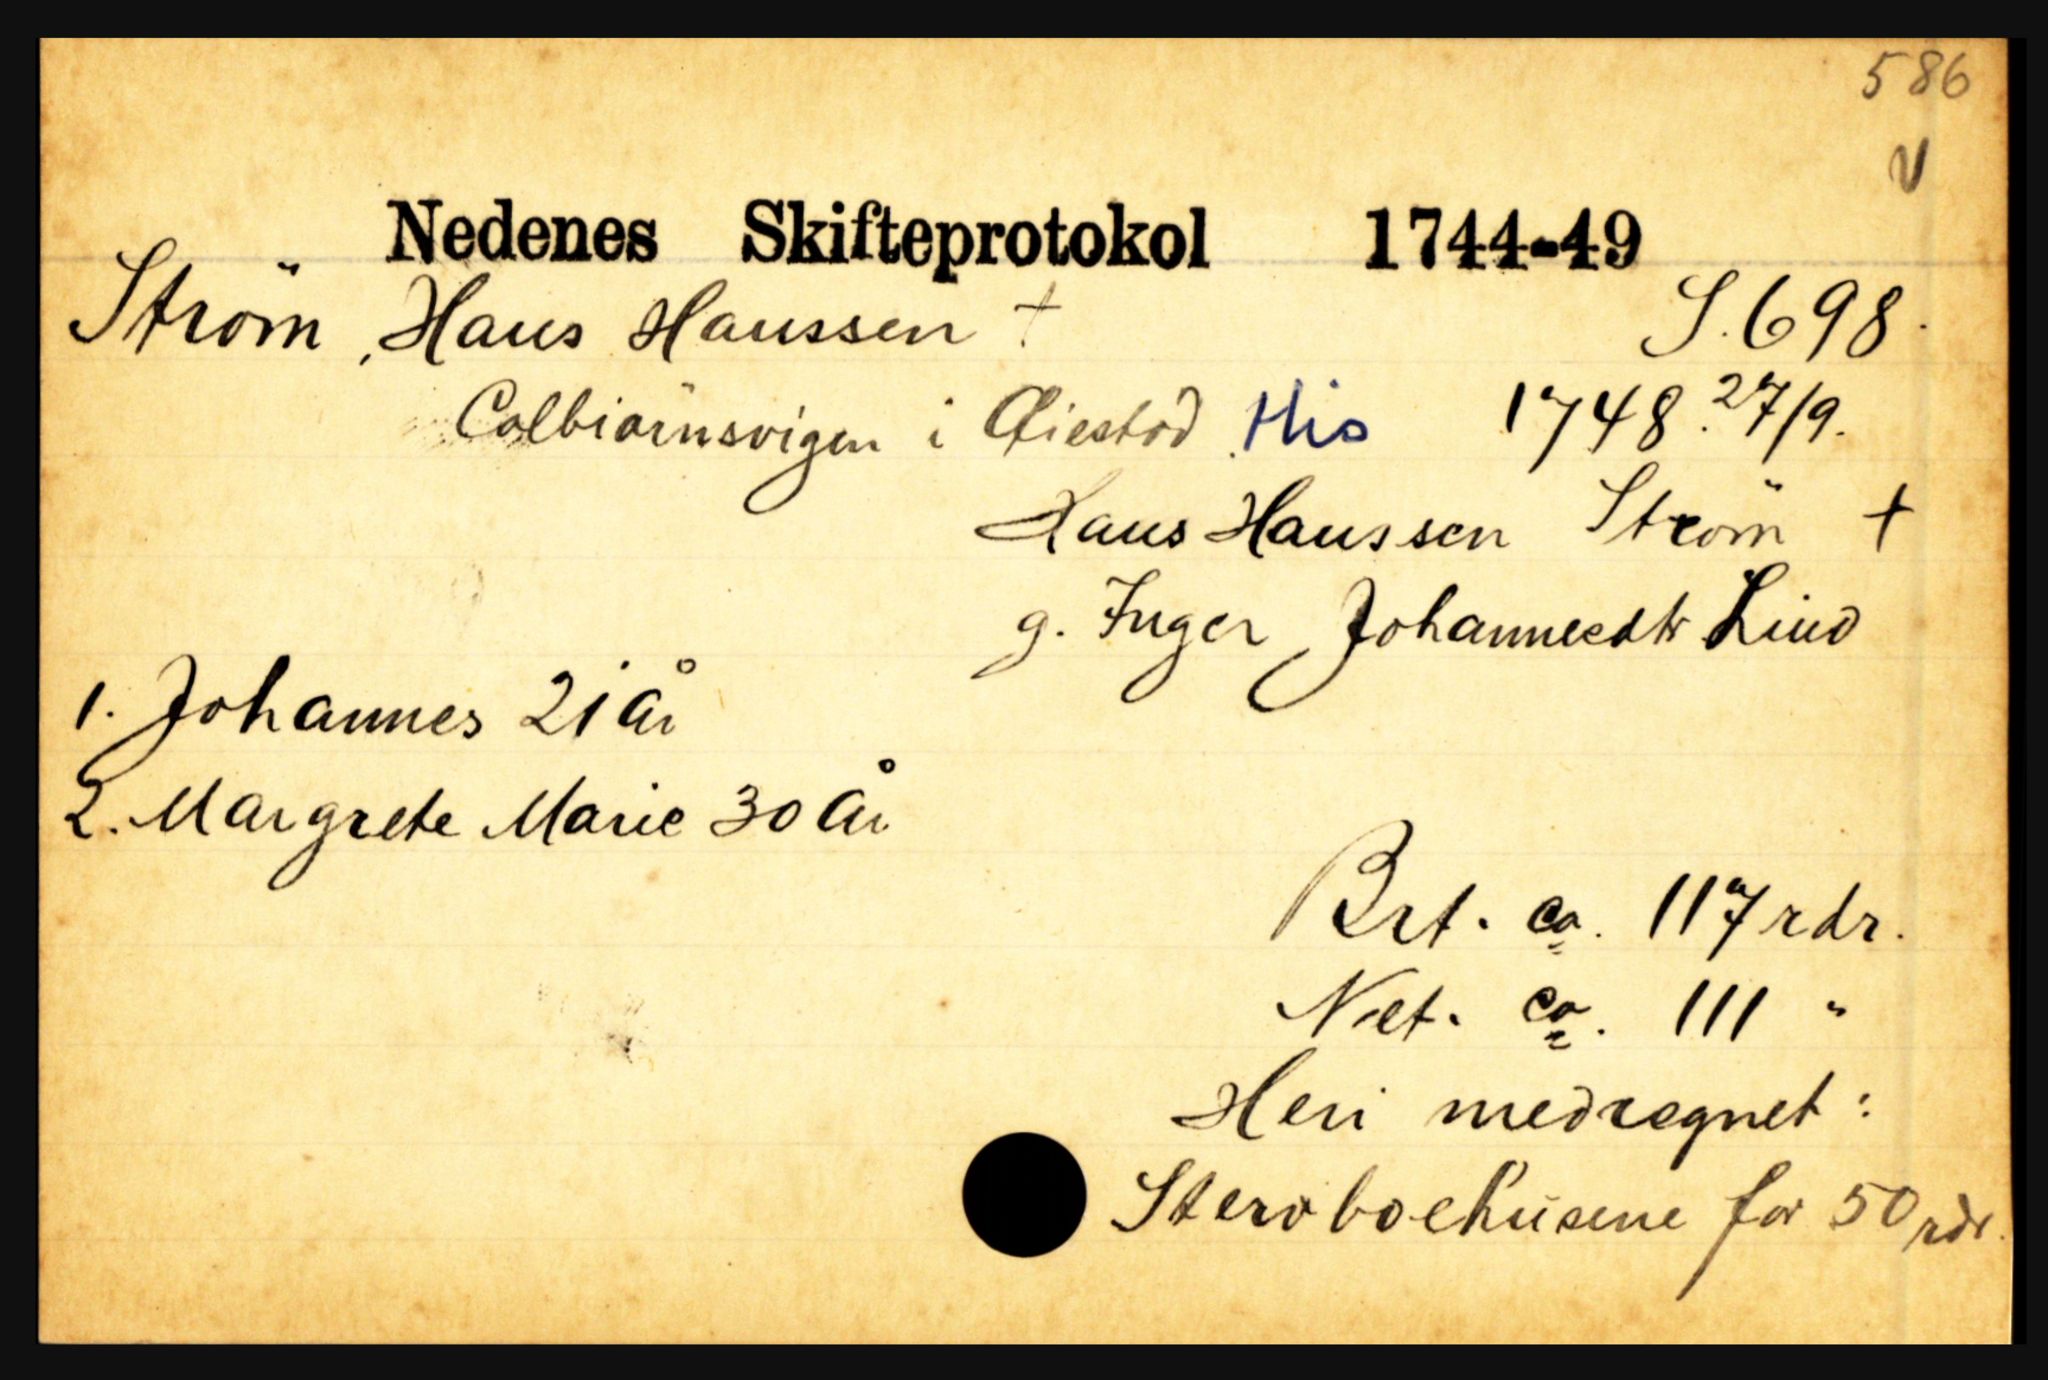 586
V
Nedenes Skifteprotokol 1744-49
Ström, Hans Hanssen † S. 698.
Colbiörnsvigen i Øiestad. His 1748. 27/9.
Hans Hanssen Ström †
g. Inger Johannesdtr Lind
1. Johannes 21 år
2. Margrete Marie 30 år
Brt. ca. 117 rdr.
Net. ca. 111 "
Heri medregnet:
Stervboehusene for 50 rdr.